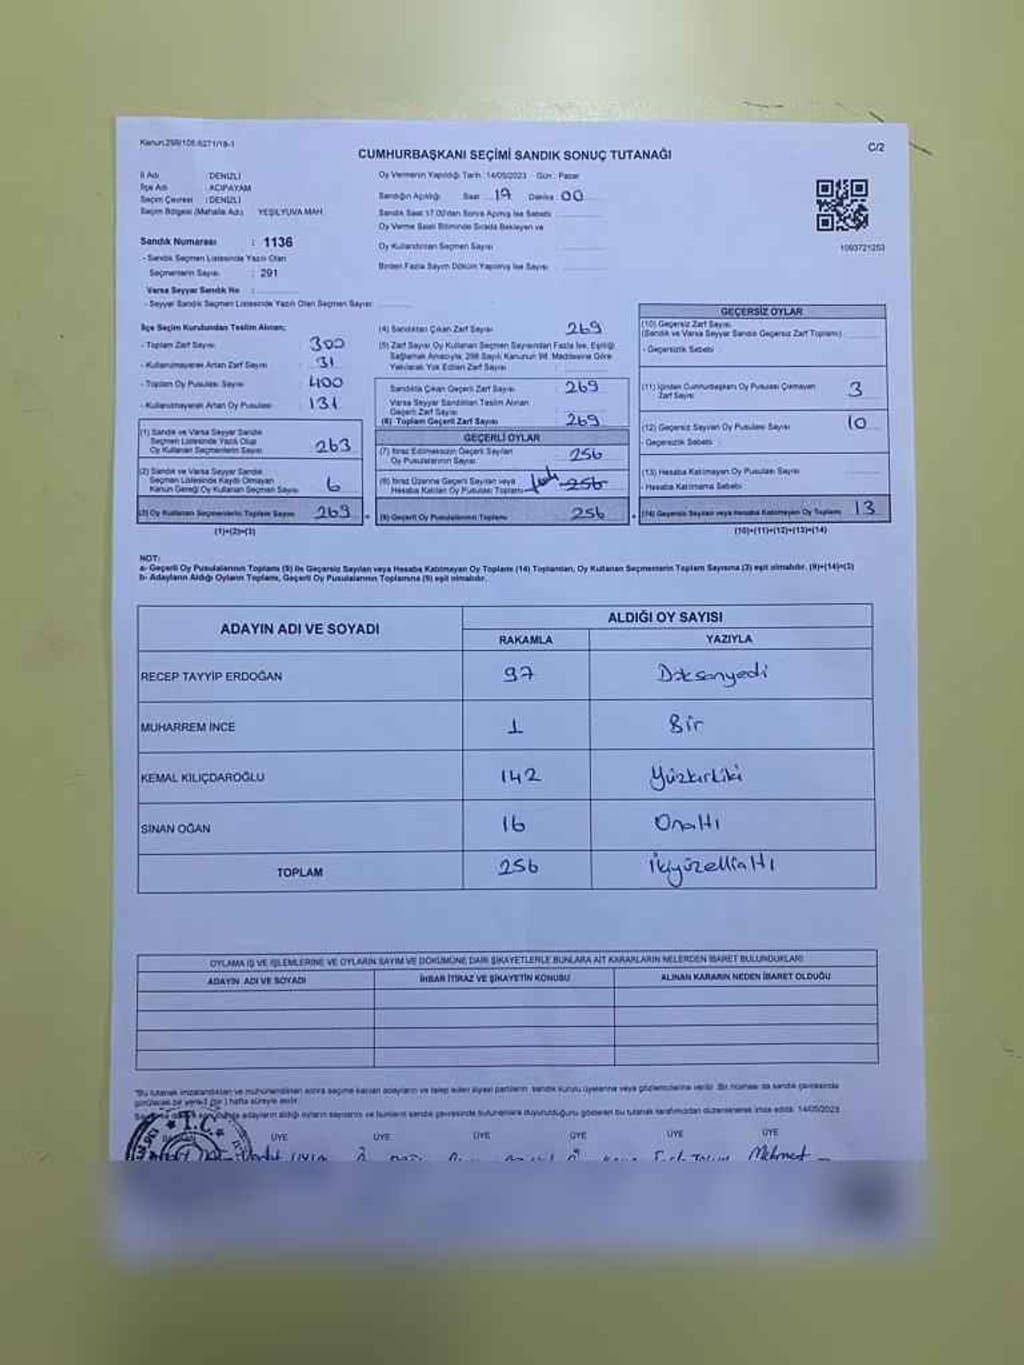 Kanun:298/105,6271/18-1
C/2
CUMHURBAŞKANI SEÇİMİ SANDIK SONUÇ TUTANAĞI
İl Adı : DENİZLİ
İlçe Adı : ACIPAYAM
Seçim Çevresi : DENİZLİ
Seçim Bölgesi (Mahalle Adı) YEŞİLYUVA MAH.
Sandık Numarası : 1136
- Sandık Seçmen Listesinde Yazılı Olan
Seçmenlerin Sayısı : 291
Varsa Seyyar Sandık No :
- Seyyar Sandık Seçmen Listesinde Yazılı Olan Seçmen Sayısı:
Oy Vermenin Yapıldığı Tarih : 14/05/2023 Gün : Pazar
Sandığın Açıldığı Saat : 17 Dakika : 00
Sandık Saat 17.00'dan Sonra Açılmış İse Sebebi :
Oy Verme Saati Bitiminde Sırada Bekleyen ve
Oy Kullandırılan Seçmen Sayısı
Birden Fazla Sayım Döküm Yapılmış İse Sayısı :
1093721253
İlçe Seçim Kurulundan Teslim Alınan;
- Toplam Zarf Sayısı : 300
- Kullanılmayarak Artan Zarf Sayısı : 31
- Toplam Oy Pusulası Sayısı : 400
- Kullanılmayarak Artan Oy Pusulası : 131
(1) Sandık ve Varsa Seyyar Sandık
Seçmen Listesinde Yazılı Olup
Oy Kullanan Seçmenlerin Sayısı 263
(2) Sandık ve Varsa Seyyar Sandık
Seçmen Listesinde Kaydı Olmayan
Kanun Gereği Oy Kullanan Seçmen Sayısı 6
(3) Oy Kullanan Seçmenlerin Toplam Sayısı 269
(1)+(2)=(3)
(4) Sandıktan Çıkan Zarf Sayısı 269
(5) Zarf Sayısı Oy Kullanan Seçmen Sayısından Fazla İse, Eşitliği
Sağlamak Amacıyla, 298 Sayılı Kanunun 98. Maddesine Göre
Yakılarak Yok Edilen Zarf Sayısı
Sandıkta Çıkan Geçerli Zarf Sayısı 269
Varsa Seyyar Sandıktan Teslim Alınan
Geçerli Zarf Sayısı
(6) Toplam Geçerli Zarf Sayısı 269
GEÇERLİ OYLAR
(7) İtiraz Edilmeksizin Geçerli Sayılan
Oy Pusulalarının Sayısı 256
(8) İtiraz Üzerine Geçerli Sayılan veya
Hesaba Katılan Oy Pusulası Toplamı 256
(9) Geçerli Oy Pusulalarının Toplamı 256
GEÇERSİZ OYLAR
(10) Geçersiz Zarf Sayısı
(Sandık ve Varsa Seyyar Sandık Geçersiz Zarf Toplamı)
- Geçersizlik Sebebi
(11) İçinden Cumhurbaşkanı Oy Pusulası Çıkmayan
Zarf Sayısı 3
(12) Geçersiz Sayılan Oy Pusulası Sayısı 10
- Geçersizlik Sebebi
(13) Hesaba Katılmayan Oy Pusulası Sayısı
- Hesaba Katılmama Sebebi
(14) Geçersiz Sayılan veya Hesaba Katılmayan Oy Toplamı 13
(10)+(11)+(12)+(13)=(14)
NOT:
a- Geçerli Oy Pusulalarının Toplamı (9) ile Geçersiz Sayılan veya Hesaba Katılmayan Oy Toplamı (14) Toplamları, Oy Kullanan Seçmenlerin Toplam Sayısına (3) eşit olmalıdır. (9)+(14)=(3)
b- Adayların Aldığı Oyların Toplamı, Geçerli Oy Pusulalarının Toplamına (9) eşit olmalıdır.
ADAYIN ADI VE SOYADI ALDIĞI OY SAYISI
RAKAMLA YAZIYLA
RECEP TAYYİP ERDOĞAN 97 Doksanyedi
MUHARREM İNCE 1 Bir
KEMAL KILIÇDAROĞLU 142 Yüzkırkiki
SİNAN OĞAN 16 Onaltı
TOPLAM 256 İkiyüzellialtı
OYLAMA İŞ VE İŞLEMLERİNE VE OYLARIN SAYIM VE DÖKÜMÜNE DAİR ŞİKAYETLERLE BUNLARA AİT KARARLARIN NELERDEN İBARET BULUNDUKLARI
ADAYIN ADI VE SOYADI İHBAR İTİRAZ VE ŞİKAYETİN KONUSU ALINAN KARARIN NEDEN İBARET OLDUĞU
"Bu tutanak imzalandıktan ve mühürlendikten sonra seçime katılan adayların ve talep eden siyasi partilerin sandık kurulu üyelerine veya gözlemcilerine verilir. Bir nüshası da sandık çevresinde
görülecek bir yere 1 (bir) hafta süreyle asılır.
adayların aldığı oyların sayılarını ve bunların sandık çevresinde bulunanlara duyurulduğunu gösteren bu tutanak tarafımızdan düzenlenerek imza edildi. 14/05/2023
T.C.
ÜYE ÜYE ÜYE ÜYE ÜYE ÜYE
Mehmet